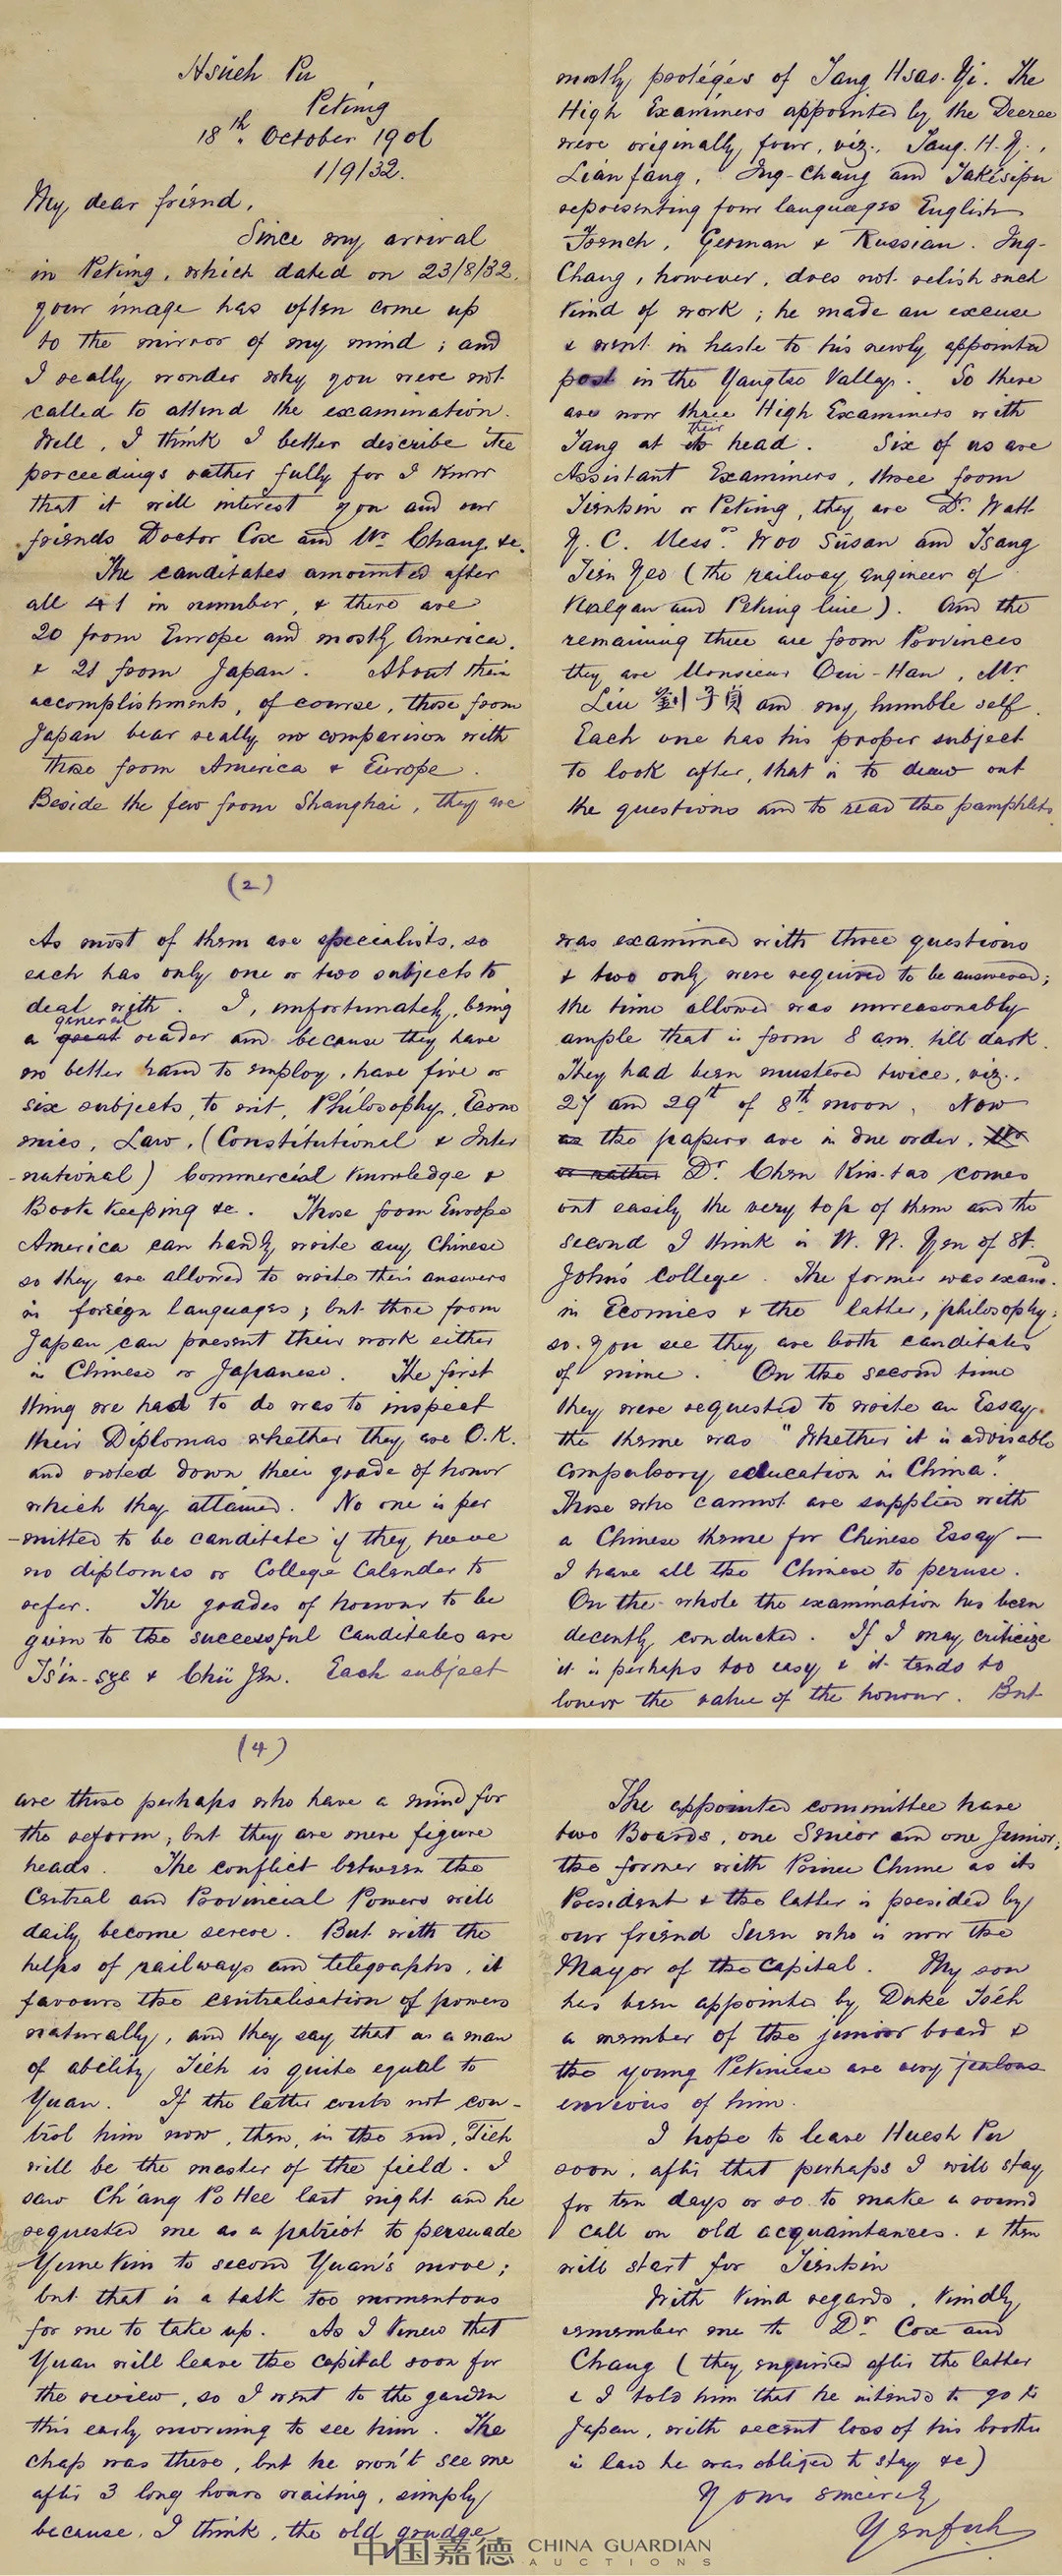 Hsüeh Pu
Peking
18th October 1906
1/9/32.
My dear friend,
Since my arrival
in Peking, which dated on 23/8/32,
your image has often come up
to the mirror of my mind; and
I really wonder why you were not
called to attend the examination.
Well, I think I better describe the
proceedings rather fully for I know
that it will interest you and our
friends Doctor Cox and Mr Chang &c.
The canditates amounted after
all 41 in number, & there are
20 from Europe and mostly America,
& 21 from Japan. About their
accomplishments, of course, those from
Japan bear really no comparison with
those from America & Europe.
Beside the few from Shanghai, they are
mostly protégés of Tang Hsao-Yi. The
High Examiners appointed by the Decree
were originally four, viz., Tang. H. Y.,
Lian fang, Ing-Chang and Takesipu
representing four languages English
French, German & Russian. Ing-
Chang, however, does not relish such
kind of work; he made an excuse
& went in haste to his newly appointed
post in the Yangtse Valley. So there
are now three High Examiners with
Tang at its their head. Six of us are
Assistant Examiners, three from
Tientsin or Peking, they are Dr. Watt
Y. C. Messrs. Woo Susan and Tsang
Tien Yeo (the railway engineer of
Kalgan and Peking line). And the
remaining three are from Provinces
they are Monsieur Ou-Han, Mr
Liu 劉子貞 and my humble self.
Each one has his proper subject
to look after, that is to draw out
the questions and to read the pamphlets.
(2)
As most of them are specialists, so
each has only one or two subjects to
deal with. I, unfortunately, being
a great general reader and because they have
no better hand to employ, have five or
six subjects, to wit, Philosophy, Econo
mics, Law, (Constitutional & Inter
-national) Commercial knowledge &
Book keeping &c. Those from Europe
America can hardly write any Chinese
so they are allowed to write their answers
in foreign languages; but those from
Japan can present their work either
in Chinese or Japanese. The first
thing we had to do was to inspect
their Diplomas whether they are O.K.
and noted down their grade of honor
which they attained. No one is per
-mitted to be canditate if they have
no diplomas or College Calender to
refer. The grades of honour to be
given to the successful canditates are
Tsin-sze & Chü Jen. Each subject
was examined with three questions
& two only were required to be answered;
the time allowed was unreasonably
ample that is from 8 am. till dark.
They had been mustered twice, viz.,
27 and 29th of 8th moon. Now
as the papers are in due order,
or rather Dr. Chen Kin-tao comes
out easily the very top of them and the
second I think is W. W. Yen of St.
John's College. The former was examd.
in Ecomics & the latter, philosophy;
so you see they are both canditates
of mine. On the second time
they were requested to write an Essay.
the theme was "Whether it is advisable
compulsory education in China".
Those who cannot are supplied with
a Chinese theme for Chinese Essay —
I have all the Chinese to peruse.
On the whole the examination has been
decently conducted. If I may criticize
it is perhaps too easy & it tends to
lower the value of the honour. But
(4)
are those perhaps who have a mind for
the reform; but they are mere figure
heads. The conflict between the
Central and Provincial Powers will
daily become severe. But with the
helps of railways and telegraphs, it
favours the centralisation of powers
naturally, and they say that as a man
of ability Tieh is quite equal to
Yuan. If the latter could not con-
trol him now, then, in the end, Tieh
will be the master of the field. I
saw Ch'ang Po Hee last night and he
requested me as a patriot to persuade
Yume Kim to second Yuan's move;
but that is a task too momentous
for me to take up. As I knew that
Yuan will leave the capital soon for
the review, so I went to the garden
this early morning to see him. The
chap was there, but he won't see me
after 3 long hours waiting, simply
because, I think, the old grudge
The appointed committee have
two Boards, one Senior and one Junior;
the former with Prince Chune as its
President & the latter is presided by
our friend Suen who is now the
Mayor of the Capital. My son
has been appointed by Duke Tseh
a member of the junior board &
the young Pekinese are very jealous
envious of him.
I hope to leave Huesh Pu
soon, after that perhaps I will stay
for ten days or so to make a round
call on old acquaintances. & then
will start for Tientsin
With kind regards, kindly
remember me to Dr. Cox and
Chang (they enquired after the latter
& I told him that he intends to go to
Japan, with recent loss of his brother
in law he was obliged to stay &c)
Yours sincerely
Yenfuh
中国嘉德 CHINA GUARDIAN
AUCTIONS